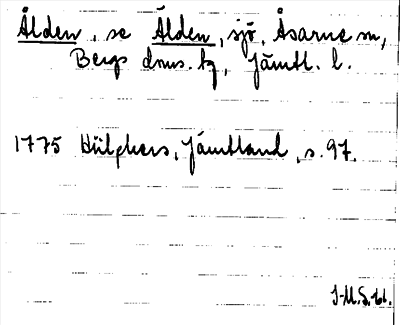 Ålden, se Älden, sjö, Åsarne sn,
Bergs dms. tg, Jämtl. l.
1775 Hülphers, Jämtland, s. 97.
J-M.S. 61.